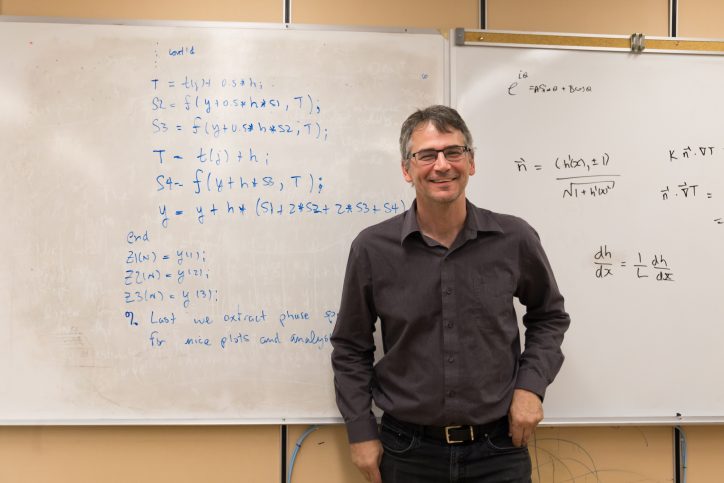 cont'd
T = t(j)+ 0.5*h;
S2 = f(y+0.5*h*S1, T);
S3 = f(y+0.5*h*S2, T);
T = t(j)+h;
S4 = f(y+h*S3, T);
y = y+h*(S1+2*S2+2*S3+S4)
end
Z1(N) = y(1);
Z2(N) = y(2);
Z3(N) = y(3);
% Last we extract phase
for nice plots and analys
e^iθ = A sinθ + B cosθ
n⃗ = (h'(x), ±1) / √(1+h'(x)²)
K n⃗ · ∇T
n⃗ · ∇⃗T =
=
dh/dx = 1/L dh/dx